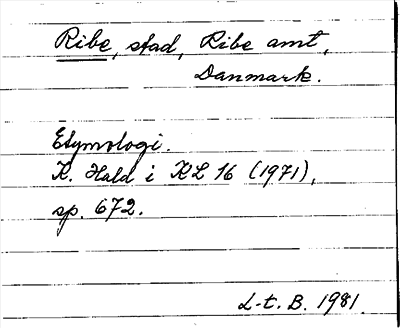 Ribe, stad, Ribe amt,
Danmark.
Etymologi.
K. Hald i KL 16 (1971),
sp. 672.
L-t. B. 1981.